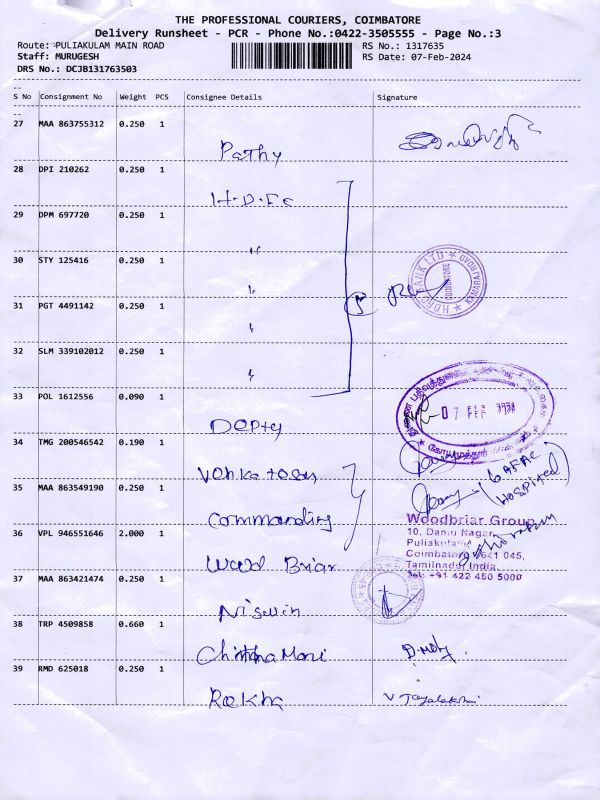 THE PROFESSIONAL COURIERS, COIMBATORE
Delivery Runsheet - PCR - Phone No.:0422-3505555 - Page No.:3
Route: PULIAKULAM MAIN ROAD RS No.: 1317635
Staff: MURUGESH RS Date: 07-Feb-2024
DRS No.: DCJB131763503
S No Consignment No Weight PCS Consignee Details Signature
27 MAA 863755312 0.250 1
Pathy
28 DPI 210262 0.250 1
H.D.Fc
29 DPM 697720 0.250 1
"
30 STY 125416 0.250 1
HDFC BANK LTD KAMARAJ ROAD COIMBATORE
31 PGT 4491142 0.250 1
32 SLM 339102012 0.250 1
33 POL 1612556 0.090 1
07 FEB 2024
Depty
34 TMG 200546542 0.190 1
Venkatesh
35 MAA 863549190 0.250 1
(6 AFAC HOSPITAL)
Commanding
36 VPL 946551646 2.000 1
Woodbriar Group
10, Damu Nagar,
Puliakulam
Coimbatore 641 045,
Tamilnadu, India.
Tel: +91 422 450 5000
Wood Briar
37 MAA 863421474 0.250 1
Niswin
38 TRP 4509858 0.660 1
ChinthaMani
39 RMD 625018 0.250 1
Rekha
V Jayalakshmi